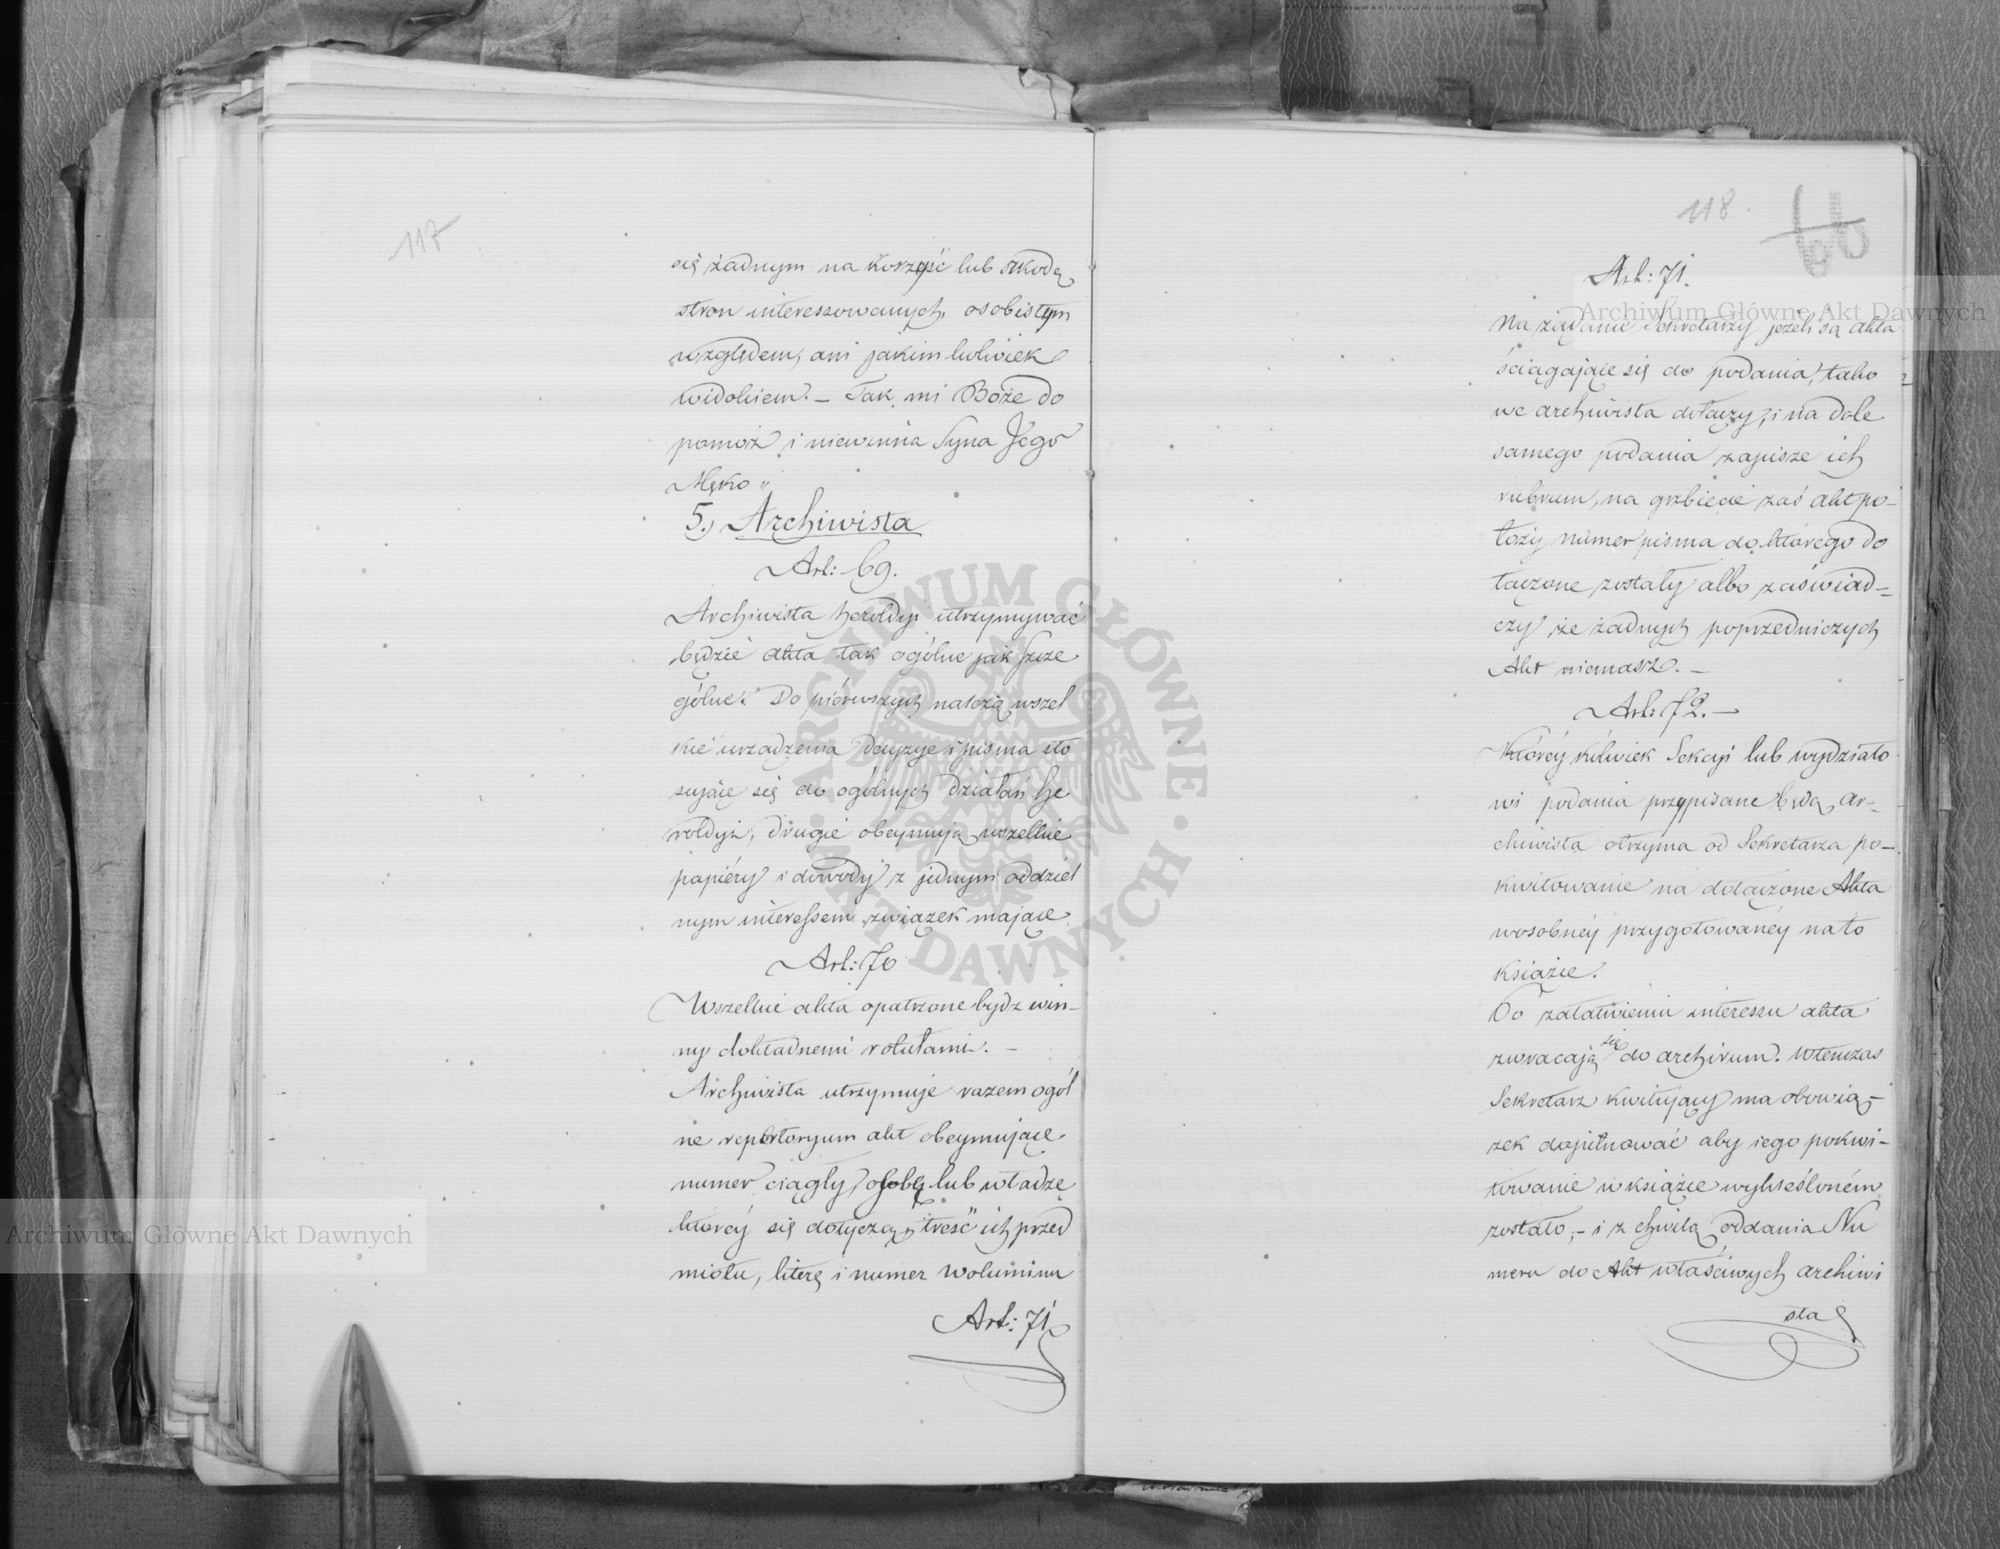 117
się żadnym na korzyść lub szkodę
stron interessowanych, osobistym
względem, ani jakimkolwiek
widokiem. – Tak mi Boże do
pomóż i niewinna Syna Jego
Męko „
5.) Archiwista
Art: 69.
Archiwista heroldyi utrzymywać
będzie akta tak ogólne jak szcze
gólne. Do pierwszych należą wszel
kie urządzenia decyzye i pisma sto
sujące się do ogólnych działań He
roldyi, drugie obeymują wszelkie
papiéry i dowody z jednym oddziel
nym interessem związek mające.
Art: 70
Wszelkie akta opatrzone bydz win–
ny dokładnemi rotułami. –
Archiwista utrzymuje razem ogól
ne repertoryum akt obeymujące
numer ciągły, osobę lub władzę
któréj się dotyczą, treść ich przed
miotu, literę i numer woluminu
Art: 71
118
66
Art: 71.
Na żądanie Sekretarzy jeżeli są akta
ściągające się do podania, tako
we archiwista dołączy, i na dole
samego podania zapisze ich
rubrum, na grzbiecie zaś akt po–
łoży numer pisma do którego do
łączone zostały albo zaświad–
czy że żadnych poprzedniczych
Akt niemasz. –
Art: 72. –
Któréy kólwiek Sekcyi lub wydziało
wi podania przypisane będą, ar–
chiwista otrzyma od Sekretarza po–
kwitowanie na dołączone Akta
wosobnéy przygotowanéy na to
książce.
Po załatwieniu interessu akta
zwracają się do archiwum. Wtenczas
Sekretarz kwitujący ma obowią–
zek dopilnować aby iego pokwi–
towanie w książce wykreślonem
zostało, – i z chwilą oddania Nu
meru do Akt właściwych archiwi
sta
Archiwum Główne Akt Dawnych
Archiwum Główne Akt Dawnych
ARCHIWUM GŁÓWNE · AKT DAWNYCH ·